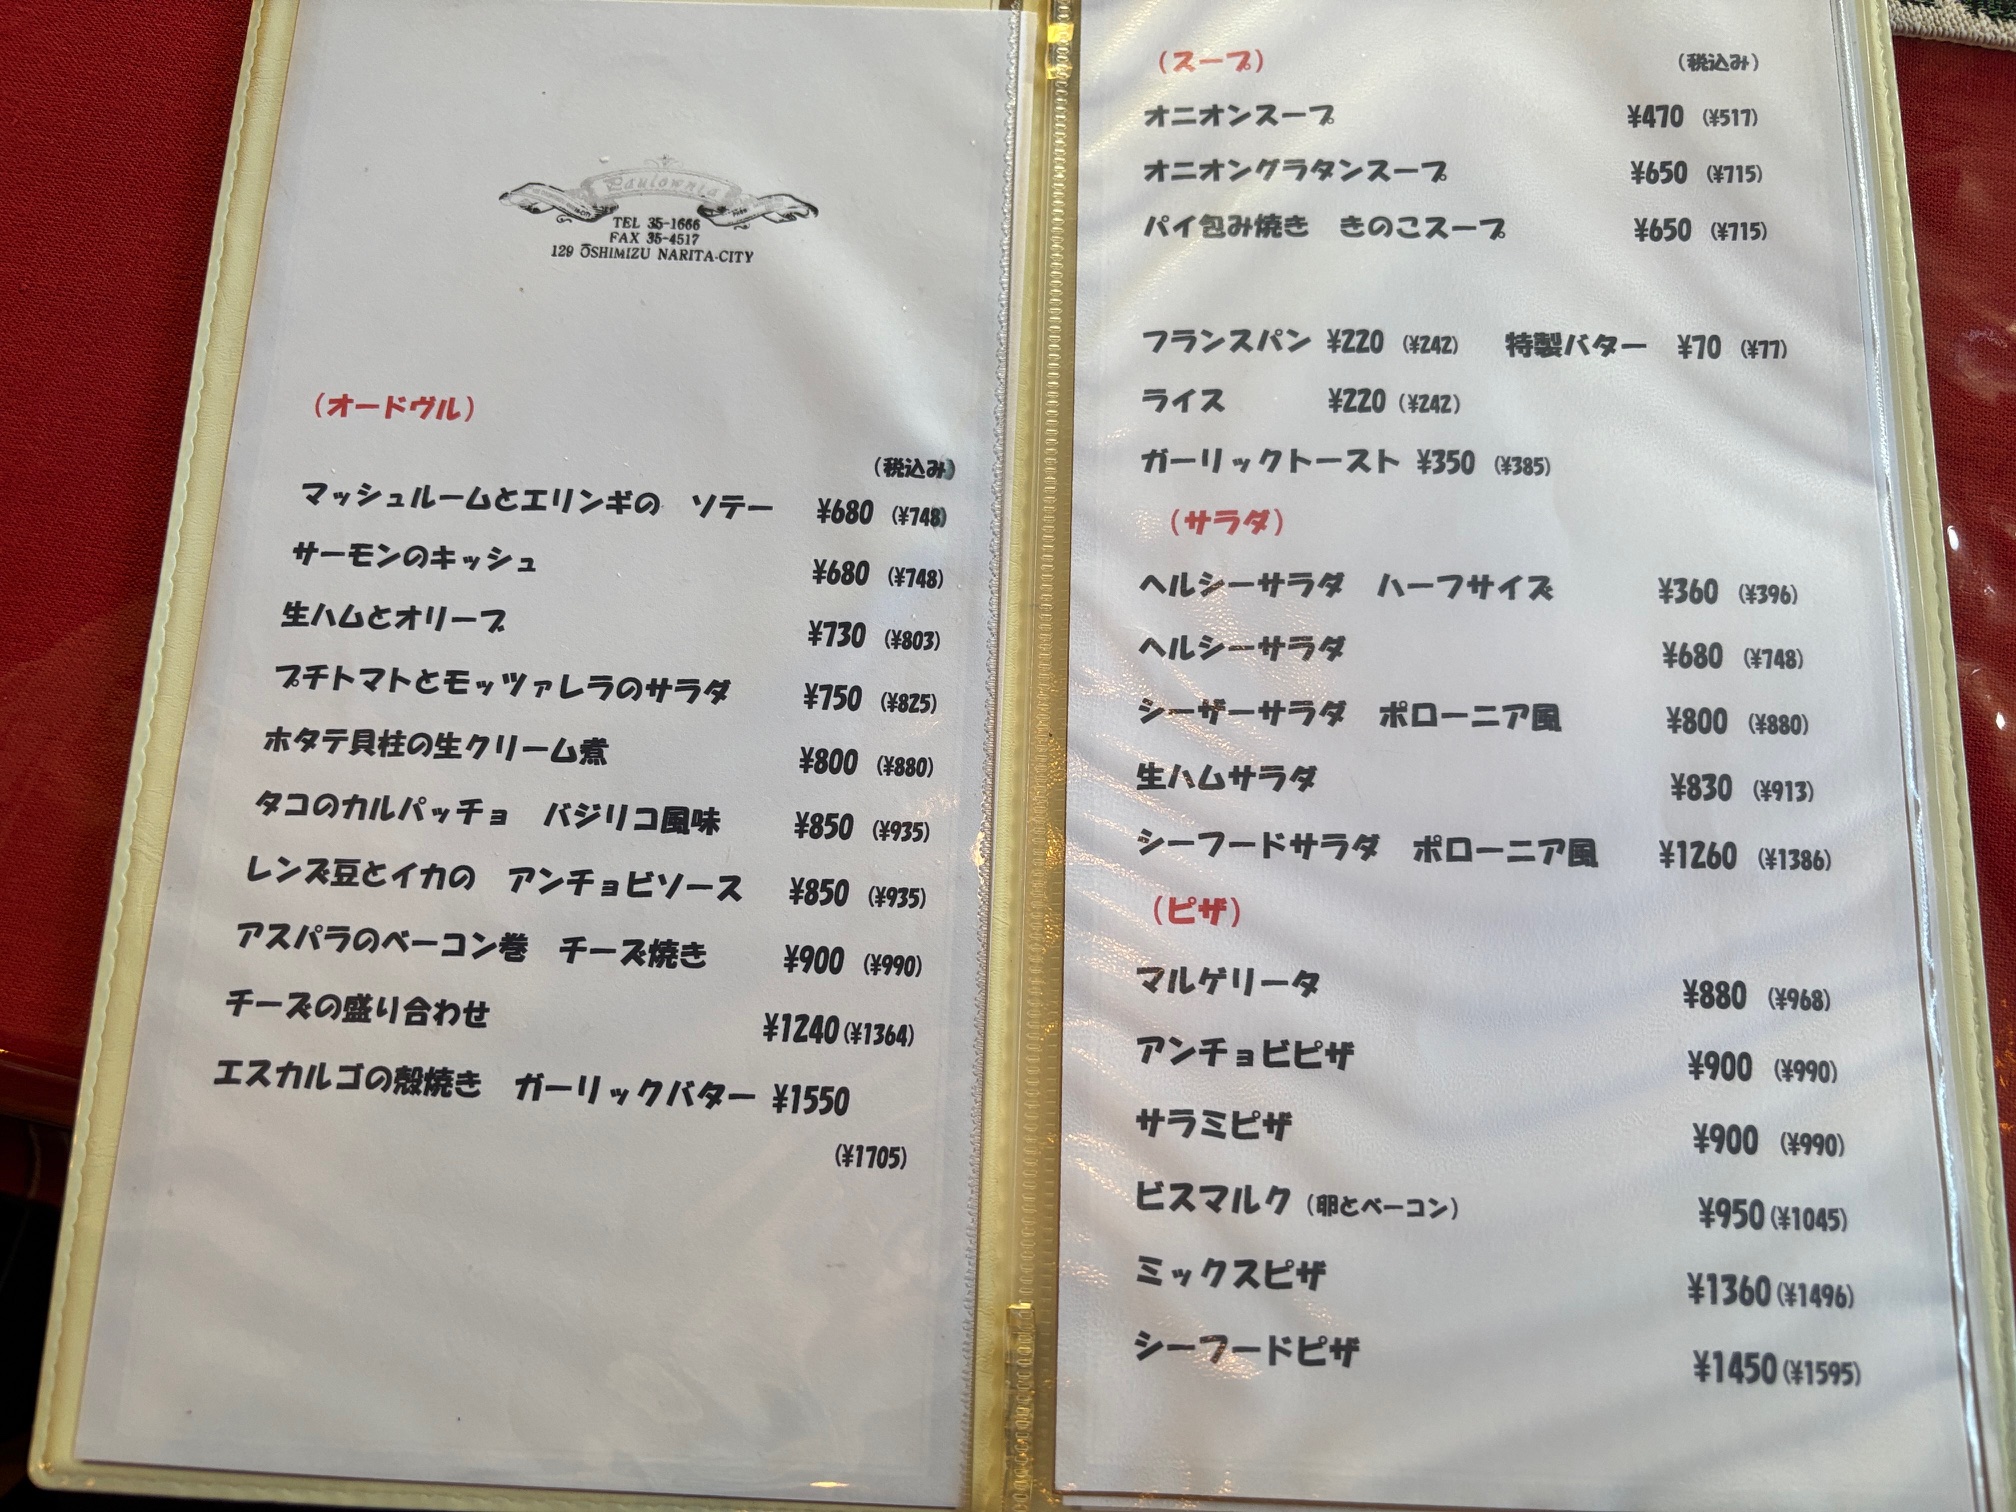 Paulownia
TEL 35-1666
FAX 35-4517
129 ŌSHIMIZU NARITA-CITY
(オードヴル)
(税込み)
マッシュルームとエリンギの ソテー ¥680 (¥748)
サーモンのキッシュ ¥680 (¥748)
生ハムとオリーブ ¥730 (¥803)
プチトマトとモッツァレラのサラダ ¥750 (¥825)
ホタテ貝柱の生クリーム煮 ¥800 (¥880)
タコのカルパッチョ バジリコ風味 ¥850 (¥935)
レンズ豆とイカの アンチョビソース ¥850 (¥935)
アスパラのベーコン巻 チーズ焼き ¥900 (¥990)
チーズの盛り合わせ ¥1240 (¥1364)
エスカルゴの殻焼き ガーリックバター ¥1550
(¥1705)
(スープ) (税込み)
オニオンスープ ¥470 (¥517)
オニオングラタンスープ ¥650 (¥715)
パイ包み焼き きのこスープ ¥650 (¥715)
フランスパン ¥220 (¥242) 特製バター ¥70 (¥77)
ライス ¥220 (¥242)
ガーリックトースト ¥350 (¥385)
(サラダ)
ヘルシーサラダ ハーフサイズ ¥360 (¥396)
ヘルシーサラダ ¥680 (¥748)
シーザーサラダ ポローニア風 ¥800 (¥880)
生ハムサラダ ¥830 (¥913)
シーフードサラダ ポローニア風 ¥1260 (¥1386)
(ピザ)
マルゲリータ ¥880 (¥968)
アンチョビピザ ¥900 (¥990)
サラミピザ ¥900 (¥990)
ビスマルク (卵とベーコン) ¥950 (¥1045)
ミックスピザ ¥1360 (¥1496)
シーフードピザ ¥1450 (¥1595)